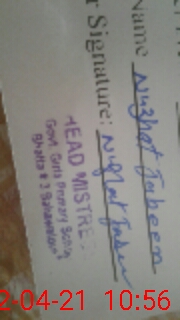 Name Nuzhat Jabeen
r Signature: Nuzhat Jabeen
HEAD MISTRE
Govt. Girls Primary School
Bhatta # 3 Bahawalpur
2-04-21 10:56